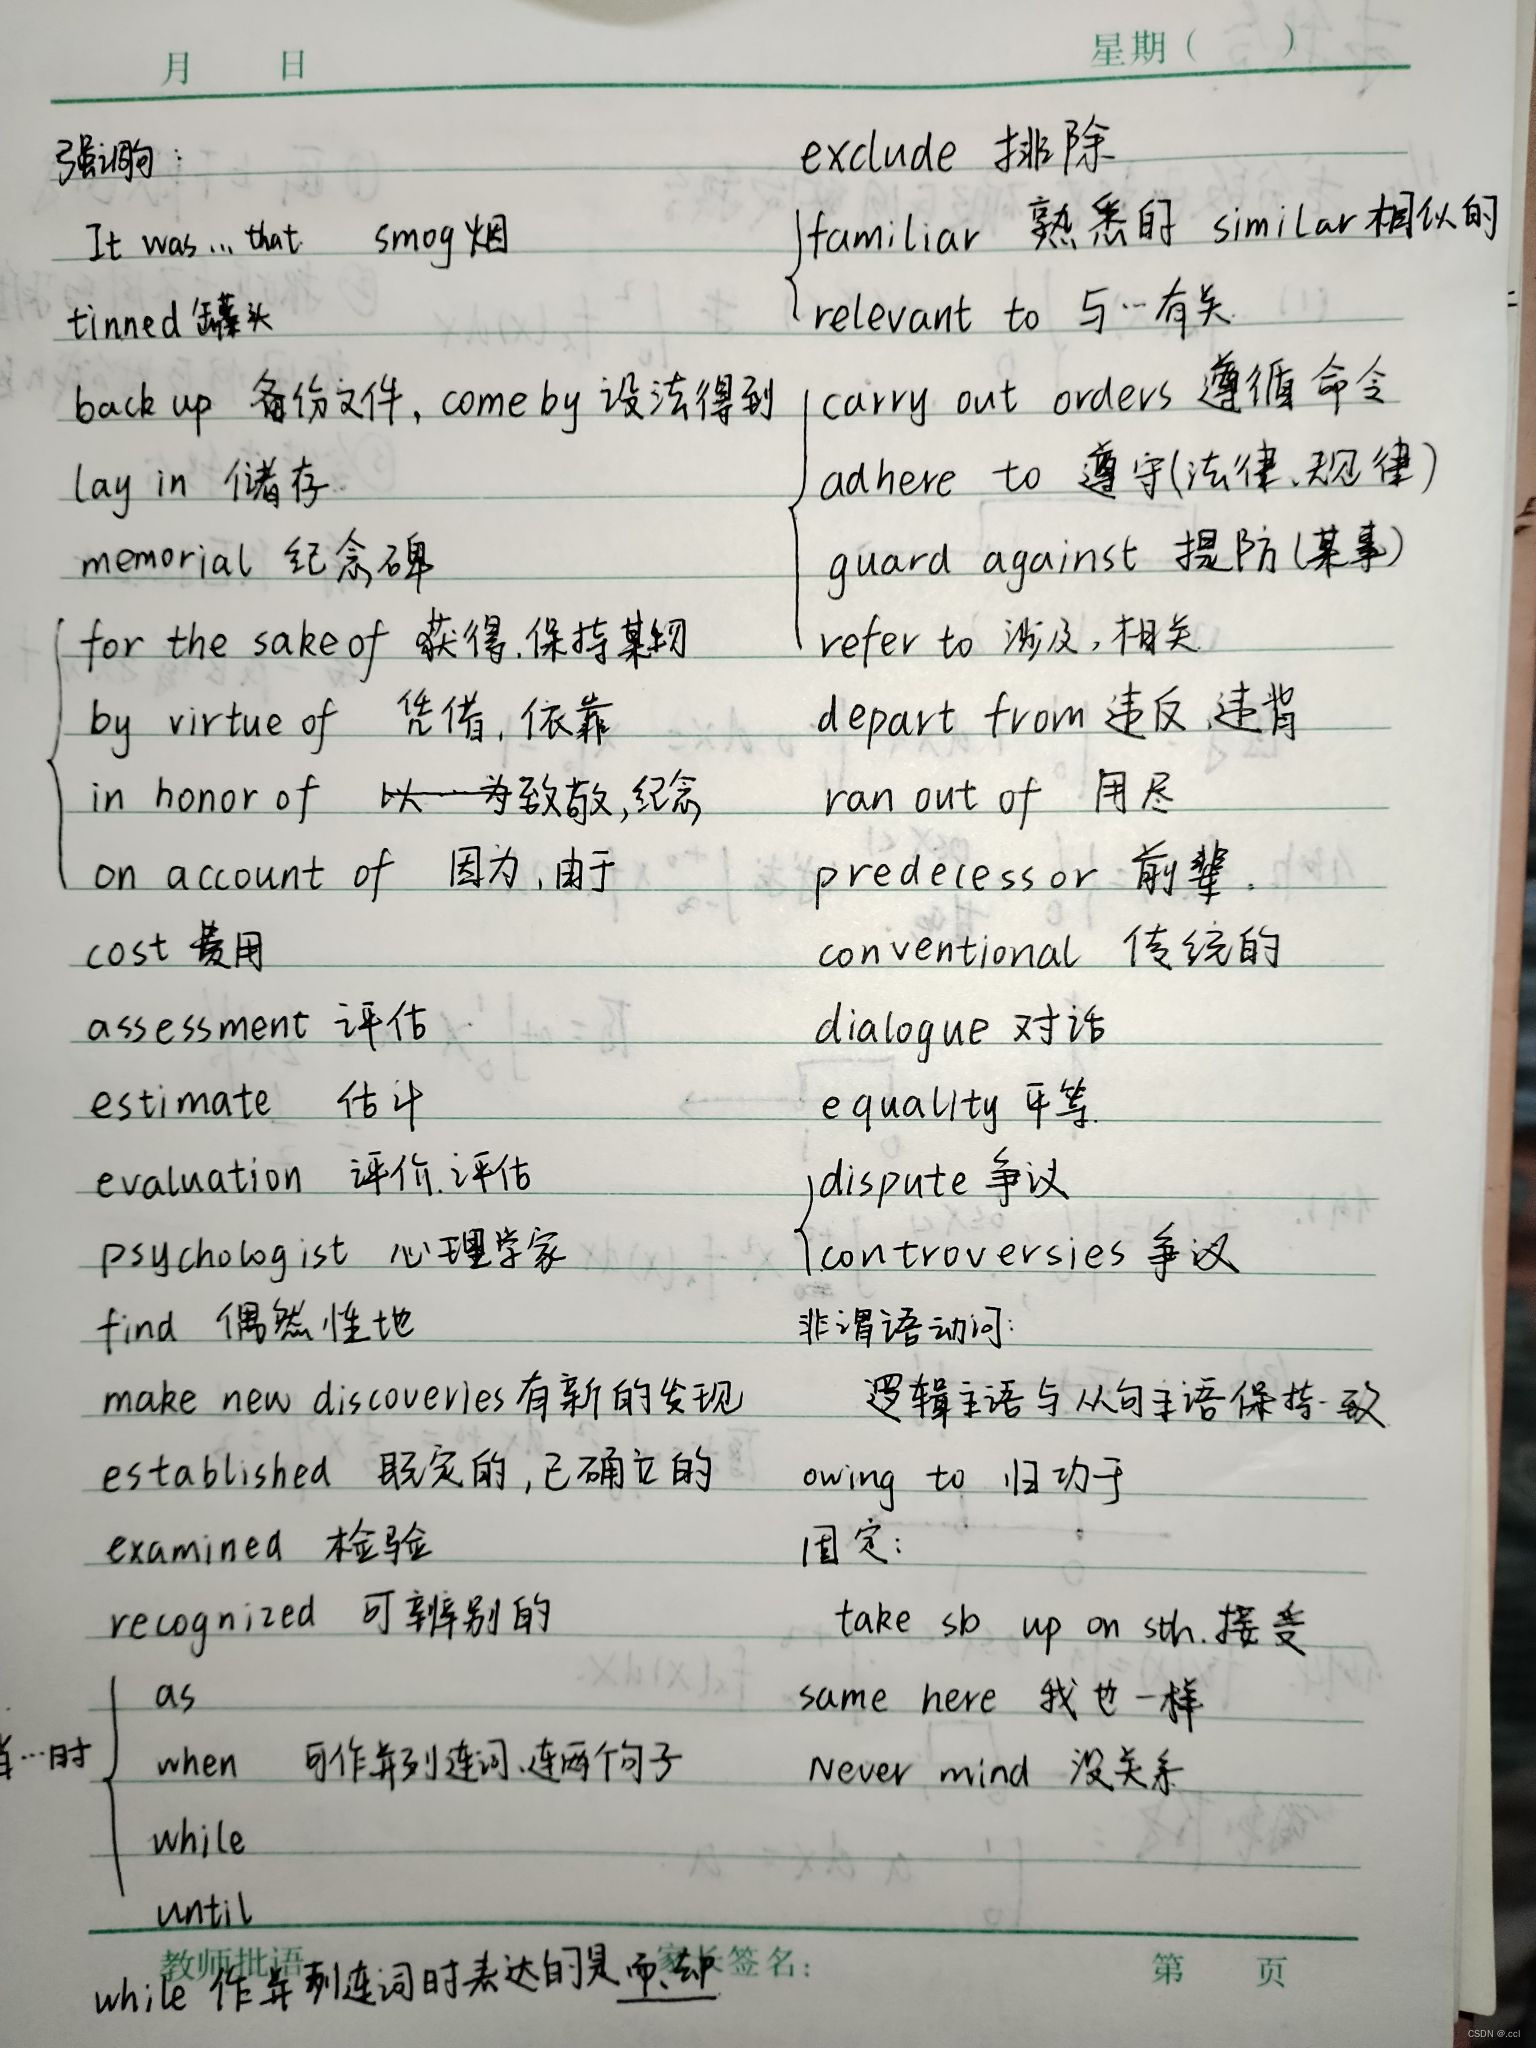 月 日
星期( )
强调句:
It was...that smog烟
tinned 罐头
back up 备份文件, come by 设法得到
lay in 储存
memorial 纪念碑
for the sake of 获得、保持某物
by virtue of 凭借,依靠
in honor of 以……为致敬,纪念
on account of 因为、由于
cost 费用
assessment 评估
estimate 估计
evaluation 评价、评估
psychologist 心理学家
find 偶然性地
make new discoveries 有新的发现
established 既定的,已确立的
examined 检验
recognized 可辨别的
as
…时 when 可作并列连词、连两个句子
while
until
while 作并列连词时表达的是而、却
exclude 排除
familiar 熟悉的 similar 相似的
relevant to 与…有关
carry out orders 遵循命令
adhere to 遵守(法律、规律)
guard against 提防(某事)
refer to 涉及,相关
depart from 违反、违背
ran out of 用尽
predecessor 前辈.
conventional 传统的
dialogue 对话
equality 平等
dispute 争议
controversies 争议
非谓语动词:
逻辑主语与从句主语保持一致
owing to 归功于
固定:
take sb up on sth. 接受
same here 我也一样
Never mind 没关系
教师批语 家长签名:
第 页
CSDN @.ccl